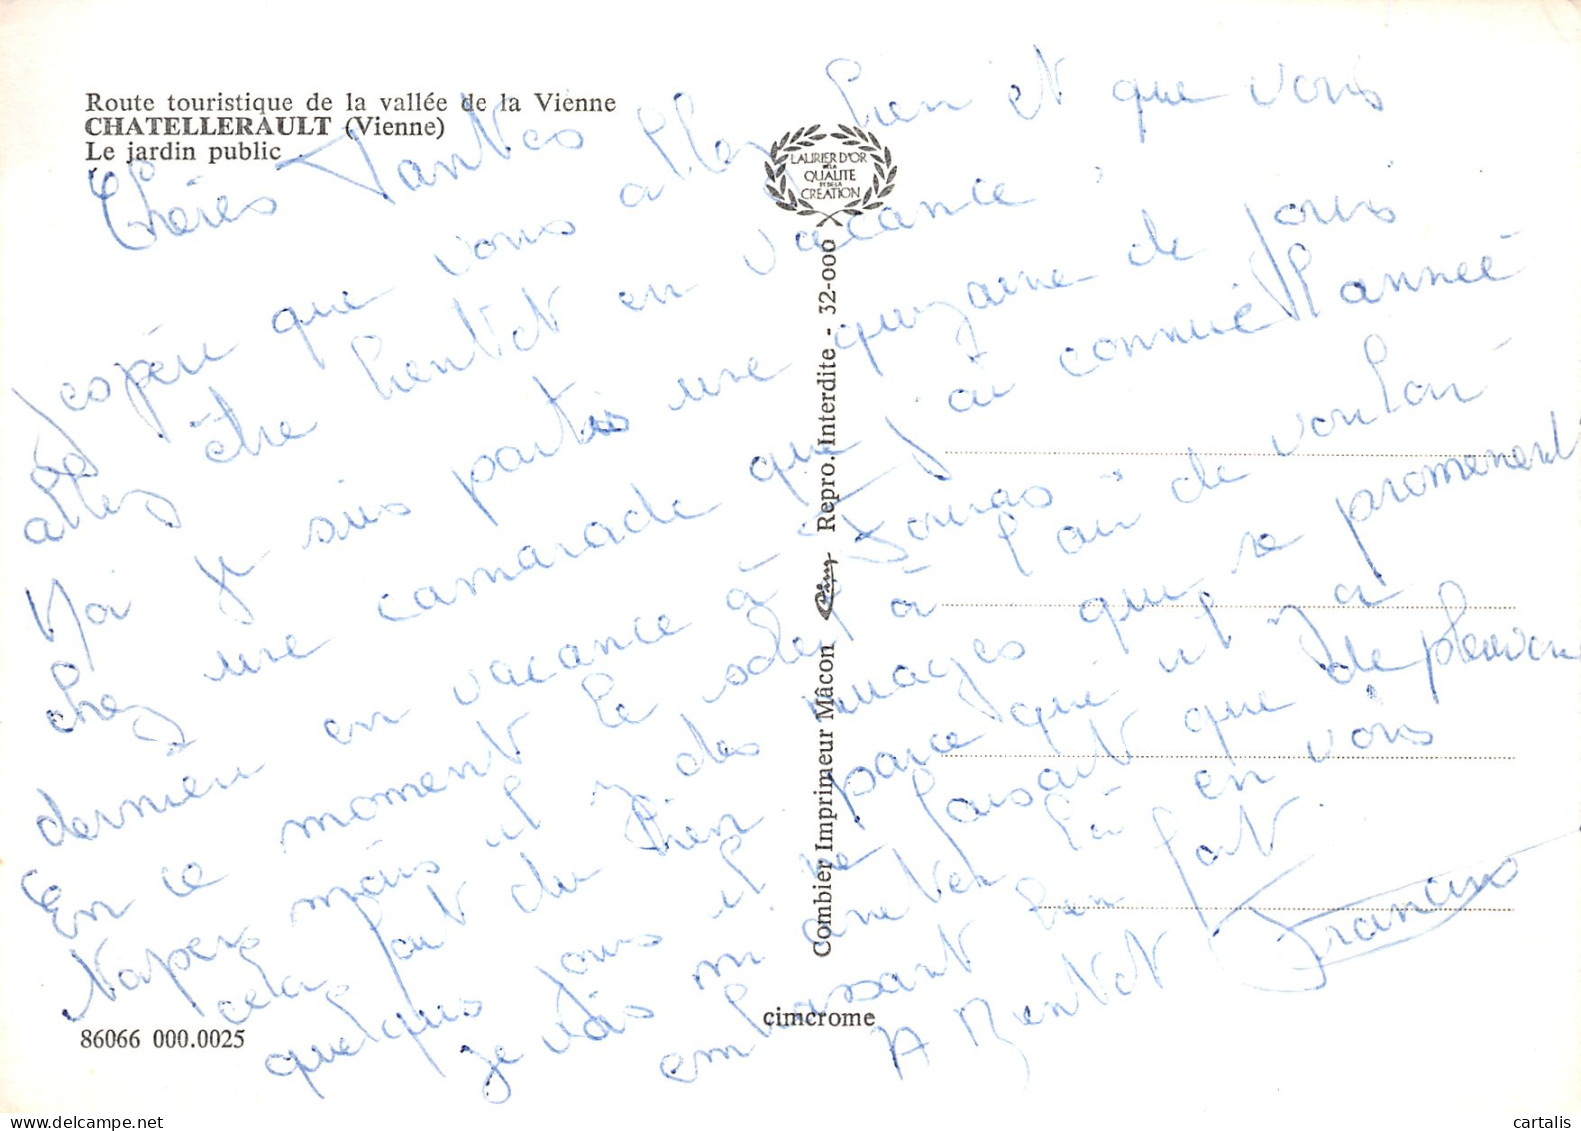 Route touristique de la vallée de la Vienne
CHATELLERAULT (Vienne)
Le jardin public
LAURIER D'OR
DE LA
QUALITE
ET DE LA
CREATION
Chères Tantes
J'espère que vous allez bien et que vous
allez être bientot en vacance.
Moi je suis partis une quinzaine de jours
chez une camarade que j'ai connue l'année
dernière en vacance à
En ce moment le soleil à l'air de vouloir
mais il y des nuages qui se promenent
cela fait du bien parce que il y a
quelques jours il ne faisait que de pleuvoir
je vais m'arreter là en vous
embrassant bien fort
A Bientot
Combier Imprimeur Mâcon Repro. Interdite - 32-000
cimcrome
86066 000.0025
cartalis